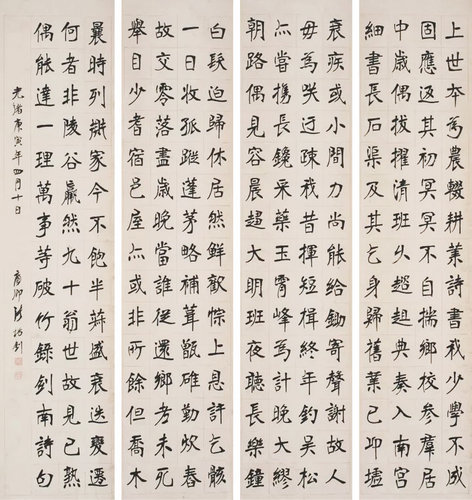 上世本為農輟耕業詩書我少學不成
固應返其初冥冥不自揣鄉校參群居
中歲偶拔擢清班超典奏入南宮
細書長石渠及其乞身歸舊業已邱墟
衰疾或力尚能給鋤寄聲謝故人
毋為咲迂疎我昔揮短楫終年釣吳松
亦嘗攜長鑱采藥玉霄峰焉知晚大繆
朝路偶見容晨趨大明班夜聽長樂鐘
白髮迫歸休居然鮮歡悰上恩許乞骸
一日收孤蹤蓬茅略補葺甑碓勤炊舂
故交零落盡歲晚當誰從還鄉未死
舉目少耆宿邑屋亦或非所餘但喬木
曩時列家今不飽半菽盛衰迭變遷
何者非陵谷羸然九十翁世故見已熟
偶能達一理萬事等破竹錄劍南詩句
光緒庚寅年四月十日